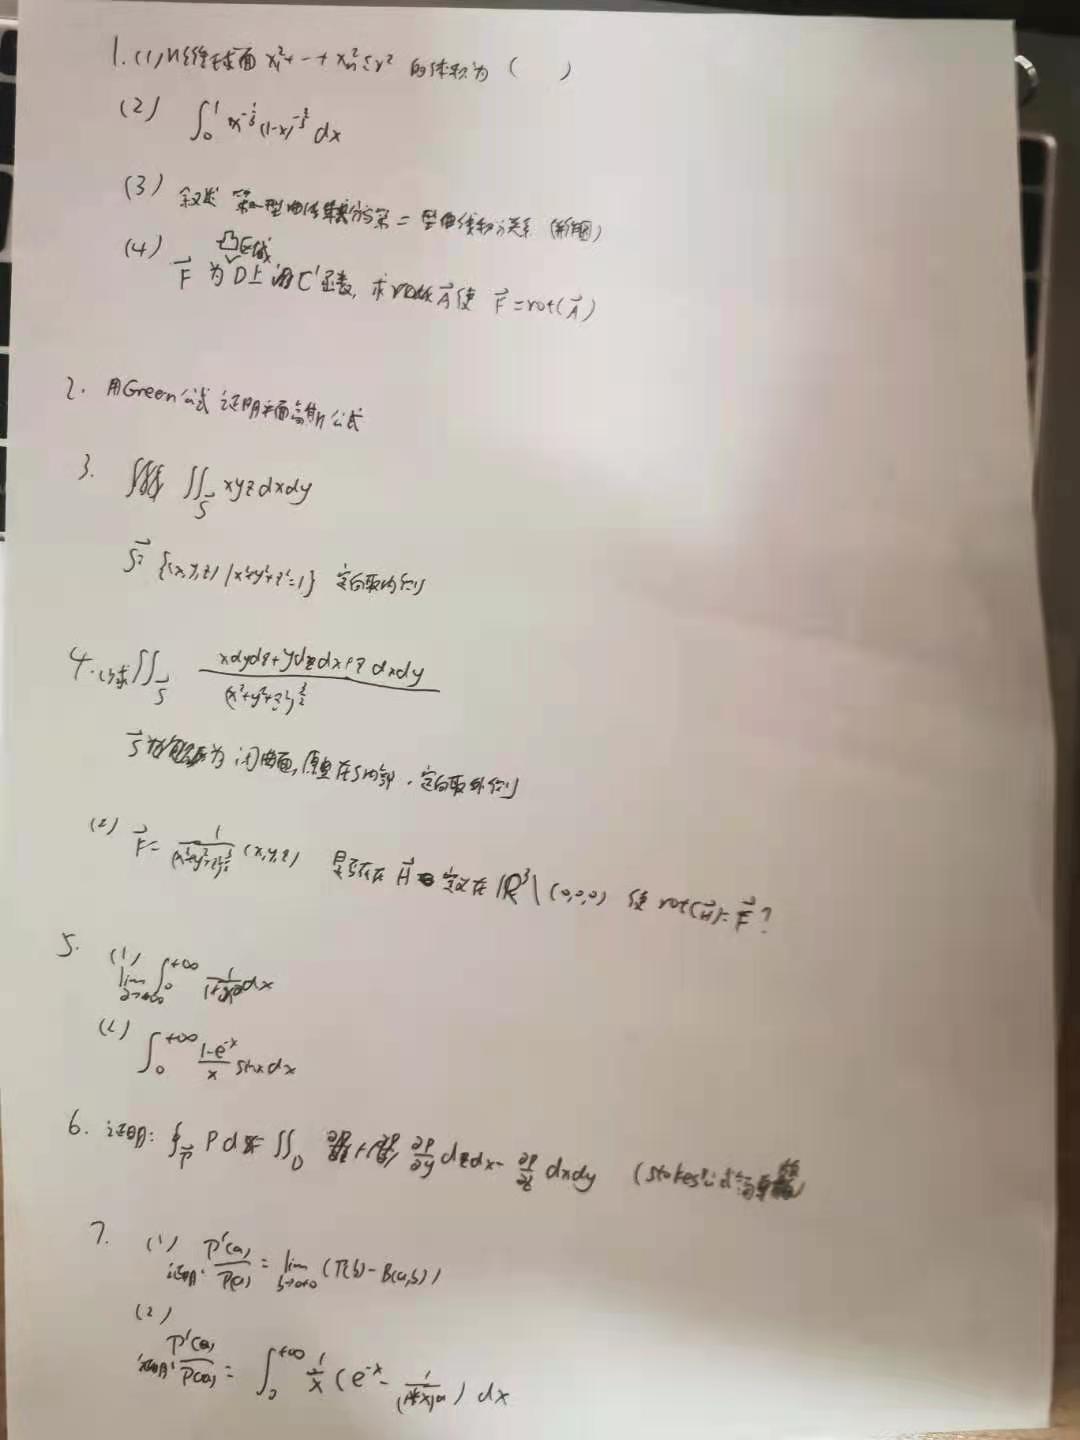 1. (1) n维球面 x₁²+…+xₙ²≤r² 的体积为 ( )
(2) ∫₀¹ x^{-1/3}(1-x)^{-2/3} dx
(3) 叙述 第一型曲线积分与第二型曲线积分关系
(4) F⃗ 为D上的C¹函数, 求 A⃗ 使 F⃗=rot(A⃗)
凸区域
2. 用Green公式证明平面 公式
3. ∬_S⃗ xyzdxdy
S⃗: {(x,y,z) | x²+y²+z²=1} 定向取内侧
4. (1) 求 ∬_S⃗ (xdydz+ydzdx+zdxdy)/(x²+y²+z²)^{3/2}
S⃗ 为闭曲面, 原点在S内部, 定向取外侧
(2) F⃗= 1/(x²+y²+z²)^{3/2} (x,y,z) 是否存在 H⃗ 定义在 ℝ³\(0,0,0) 使 rot(H⃗)=F⃗?
5. (1) lim ∫₀^{+∞} dx
(2) ∫₀^{+∞} (1-e^{-x})/x sinxdx
6. 证明: ∮_Γ⃗ Pdx= ∬_D ∂P/∂y dzdx - ∂P/∂z dxdy (Stokes公式
7. (1) 证明: Γ'(a)/Γ(a) = lim_{b→0} (Γ(b)-B(a,b))
(2) 证明: Γ'(a)/Γ(a) = ∫₀^{+∞} 1/x (e^{-x} - 1/(1+x)^a) dx